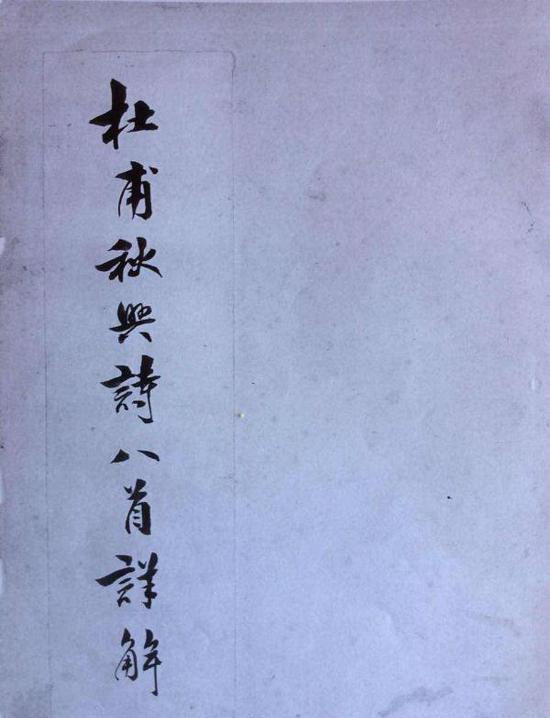 杜甫秋興詩八首詳解